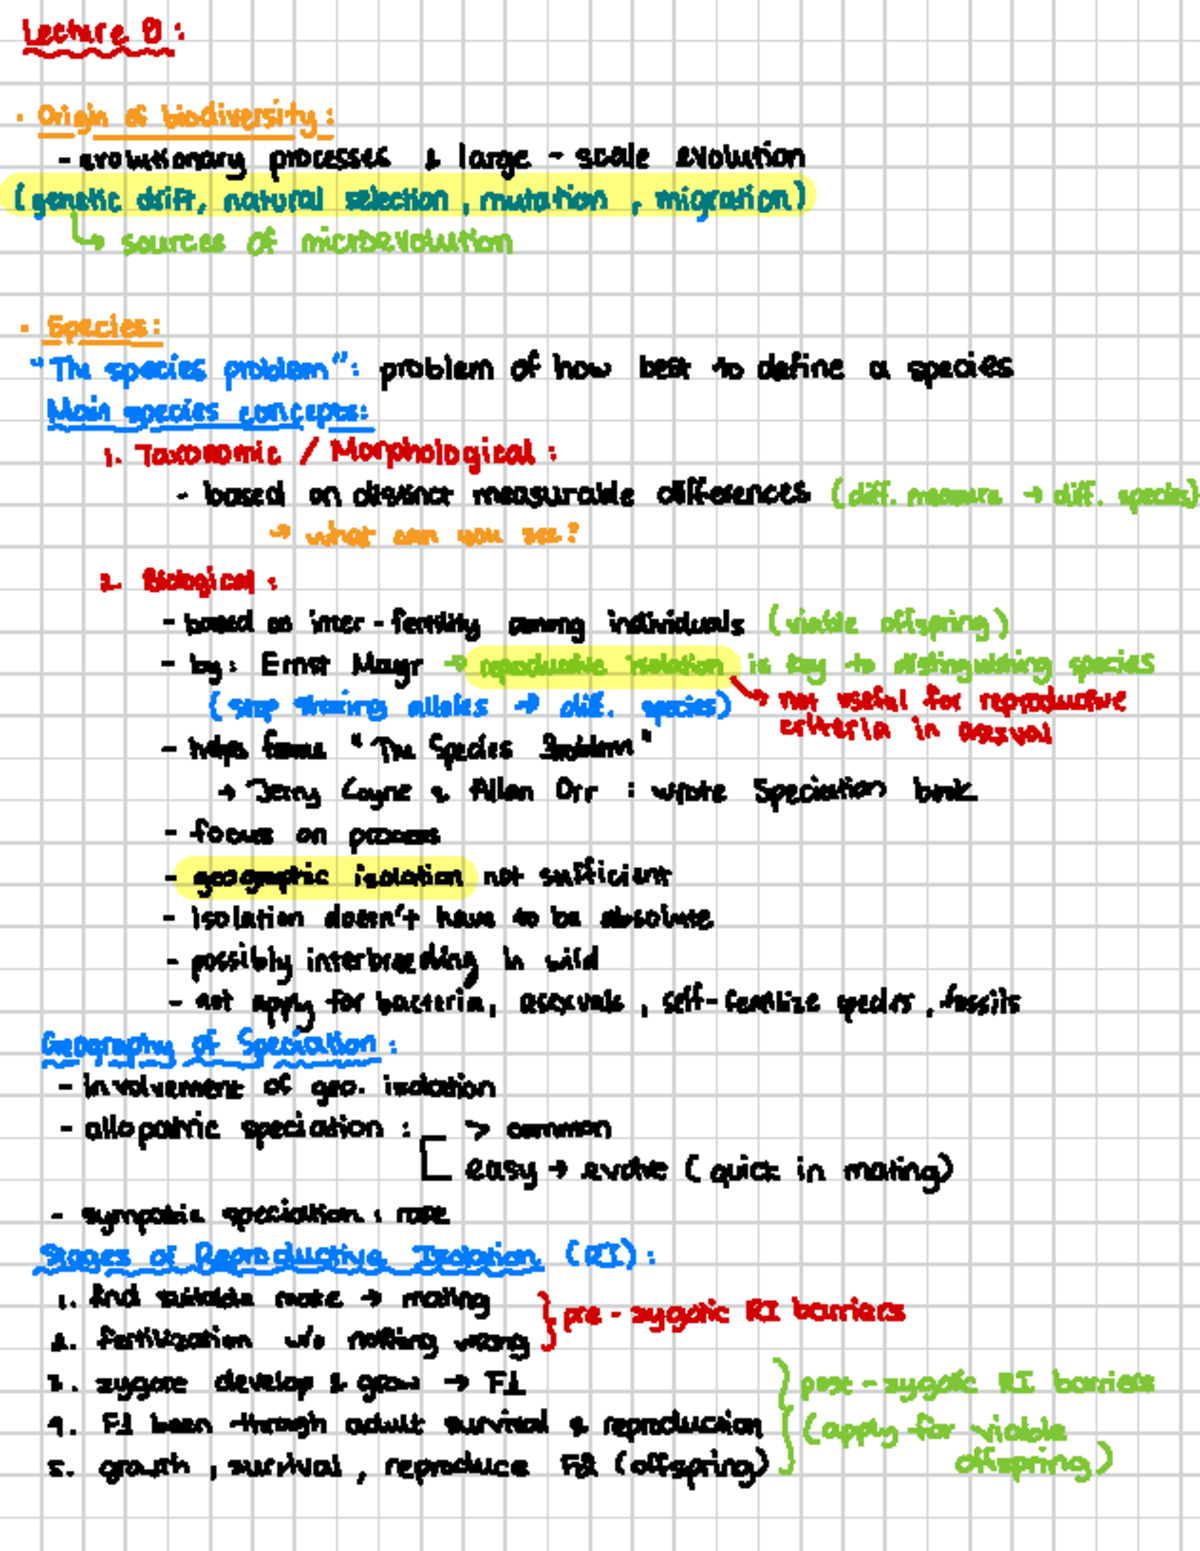 Lecture 8:
• Origin of biodiversity:
- evolutionary processes & large-scale evolution
(genetic drift, natural selection, mutation, migration)
↳ sources of microevolution
• Species:
"The species problem": problem of how best to define a species
Main species concepts:
1. Taxonomic / Morphological:
- based on distinct measurable differences (diff. measure → diff. species)
→ what can you see?
2. Biological:
- based on inter-fertility among individuals (viable offspring)
- by: Ernst Mayr → reproductive isolation is key to distinguishing species
(stop sharing alleles → diff. species) → not useful for reproductive
criteria in asexual
- helps frame "The Species Problem"
→ Jerry Coyne & Allan Orr : wrote Speciation book
- focus on process
- geographic isolation not sufficient
- isolation doesn't have to be absolute
- possibly interbreeding in wild
- not apply for bacteria, asexuals, self-fertilize species, fossils
Geography of Speciation:
- involvement of geo. isolation
- allopatric speciation: > common
easy → evolve (quick in mating)
- sympatric speciation: rare
Stages of Reproductive Isolation (RI):
1. find suitable mate → mating
2. fertilization w/o nothing wrong } pre-zygotic RI barriers
3. zygote develop & grow → F1
4. F1 been through adult survival & reproduction
5. growth, survival, reproduce F2 (offspring) } post-zygotic RI barriers
(apply for viable
offspring)